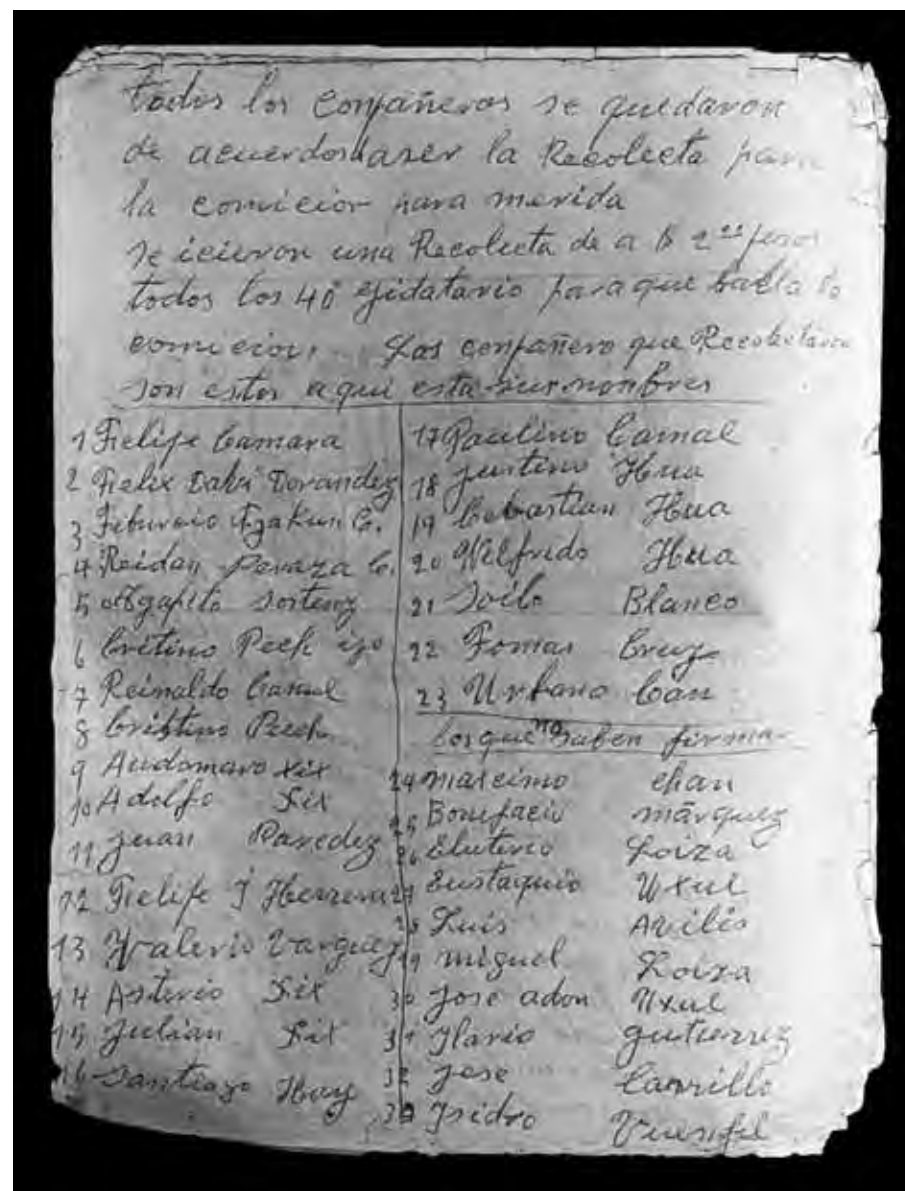 todos los conpañeros se quedaron
de acuerdos aser la Recolecta para
la comicion para merida
se icieron una Recolecta de a $ 2 pesos
todos los 40 ejidatario para que balla la
comicion. Los conpañero que Recolectaron
son estos aqui esta sus nonbres
1 Fielipe Camara
2 Fielix
3
4 Reidan Peraza C.
5 Agapito
6 Critino Pech
7 Reinaldo Camal
8 Cristino Pech
9 Audomaro xix
10 Adolfo Xix
11 Juan Paredez
12 Fielipe J Herrera
13 Valerio Varguez
14 Asterio Xix
15 Julian Xix
16 Santiago Hay
17 Paulino Camal
18 Justino Hua
19 Cebastian Hua
20 Wilfrido Hua
21 Soilo Blanco
22 Tomas Cruz
23 Urbano Can
Los que no saben firmar
24 maxcimo chan
25 Bonifacio márquez
26 Eluterio Loiza
27 Eustaquio Uxul
28 Luis Avilis
29 miguel Loiza
30 Jose adon Uxul
31 Ilario gutierrez
32 Jose Carrillo
33 Isidro